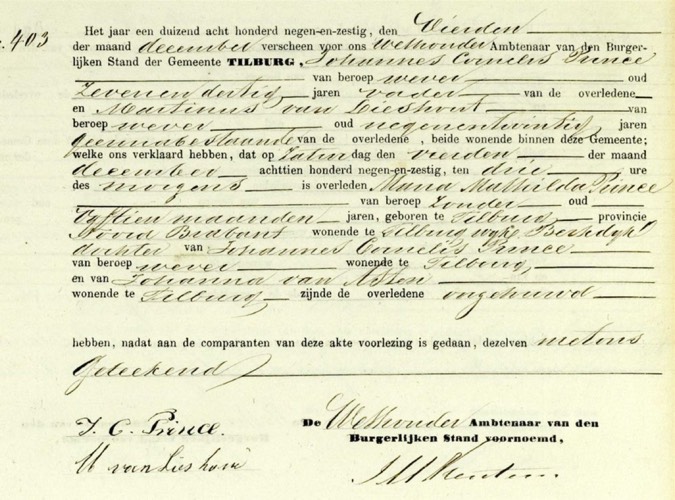 403
Het jaar een duizend acht honderd negen-en-zestig, den Vierden
der maand december verscheen voor ons Wethouder Ambtenaar van den Burger-
lijken Stand der Gemeente TILBURG, Johannes Cornelis Prince
van beroep wever oud
Zevenendertig jaren vader van de overledene
en Martinus van Lieshout van
beroep wever oud negenentwintig jaren
geenaabestaande van de overledene, beide wonende binnen deze Gemeente;
welke ons verklaard hebben, dat op Zaturdag den vierden der maand
december achttien honderd negen-en-zestig, ten drie ure
des morgens is overleden Maria Mathilda Prince
van beroep Zonder oud
Vijftien maanden jaren, geboren te Tilburg provincie
Noord Brabant wonende te Tilburg wijk Berkdijk
dochter van Johannes Cornelis Prince
van beroep wever wonende te Tilburg
en van Johanna van Asten
wonende te Tilburg zijnde de overledene ongehuwd
hebben, nadat aan de comparanten van deze akte voorlezing is gedaan, dezelven metons
Geteekend
J. C. Prince.
De Wethouder Ambtenaar van den
Burgerlijken Stand voornoemd,
M van Lieshout